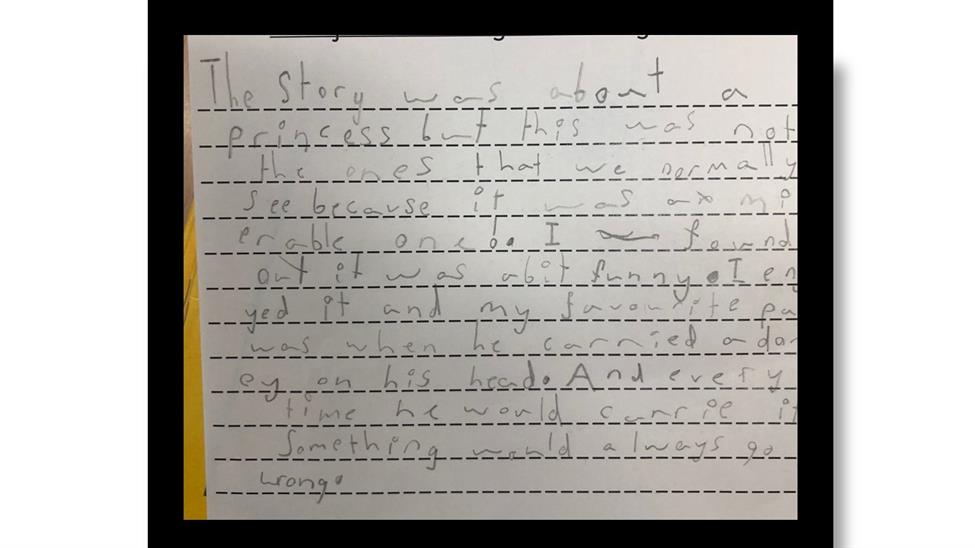 The story was about a
princess but this was not
the ones that we normally
see because it was a mi
erable one. I found
out it was abit funny. I en
yed it and my favourite pa
was when he carried a do
ey on his head. And every
time he would carrie it
Something would always go
wrong.